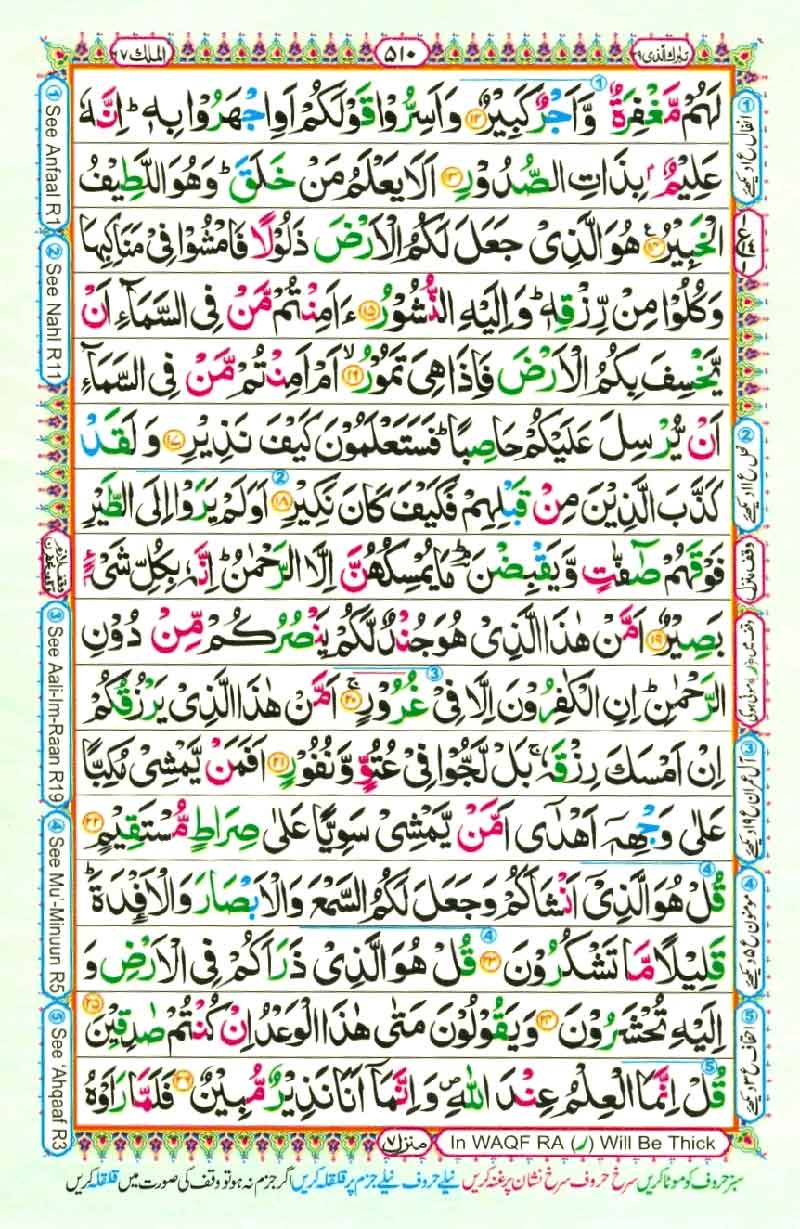 تبارك الذى ٢٩
٥١٠
الملك ٦٧
لَهُمْ مَّغْفِرَةٌ وَّاَجْرٌ كَبِيْرٌ ۝۱۲ وَاَسِرُّوْا قَوْلَكُمْ اَوِ اجْهَرُوْا بِهٖ ؕ اِنَّهٗ
عَلِيْمٌۢ بِذَاتِ الصُّدُوْرِ ۝۱۳ اَلَا يَعْلَمُ مَنْ خَلَقَ ؕ وَهُوَ اللَّطِيْفُ
الْخَبِيْرُ ۝۱۴ هُوَ الَّذِىْ جَعَلَ لَكُمُ الْاَرْضَ ذَلُوْلًا فَامْشُوْا فِىْ مَنَاكِبِهَا
وَكُلُوْا مِنْ رِّزْقِهٖ ؕ وَاِلَيْهِ النُّشُوْرُ ۝۱۵ ءَاَمِنْتُمْ مَّنْ فِى السَّمَآءِ اَنْ
يَّخْسِفَ بِكُمُ الْاَرْضَ فَاِذَا هِىَ تَمُوْرُ ۝۱۶ ۙ اَمْ اَمِنْتُمْ مَّنْ فِى السَّمَآءِ
اَنْ يُّرْسِلَ عَلَيْكُمْ حَاصِبًا ؕ فَسَتَعْلَمُوْنَ كَيْفَ نَذِيْرِ ۝۱۷ وَلَقَدْ
كَذَّبَ الَّذِيْنَ مِنْ قَبْلِهِمْ فَكَيْفَ كَانَ نَكِيْرِ ۝۱۸ اَوَلَمْ يَرَوْا اِلَى الطَّيْرِ
فَوْقَهُمْ صٰٓفّٰتٍ وَّيَقْبِضْنَ ؔۘؕ مَا يُمْسِكُهُنَّ اِلَّا الرَّحْمٰنُ ؕ اِنَّهٗ بِكُلِّ شَىْءٍۭ
بَصِيْرٌ ۝۱۹ اَمَّنْ هٰذَا الَّذِىْ هُوَ جُنْدٌ لَّكُمْ يَنْصُرُكُمْ مِّنْ دُوْنِ
الرَّحْمٰنِ ؕ اِنِ الْكٰفِرُوْنَ اِلَّا فِىْ غُرُوْرٍ ۝۲۰ ۚ اَمَّنْ هٰذَا الَّذِىْ يَرْزُقُكُمْ
اِنْ اَمْسَكَ رِزْقَهٗ ۚ بَلْ لَّجُّوْا فِىْ عُتُوٍّ وَّنُفُوْرٍ ۝۲۱ اَفَمَنْ يَّمْشِىْ مُكِبًّا
عَلٰى وَجْهِهٖۤ اَهْدٰٓى اَمَّنْ يَّمْشِىْ سَوِيًّا عَلٰى صِرَاطٍ مُّسْتَقِيْمٍ ۝۲۲
قُلْ هُوَ الَّذِىْۤ اَنْشَاَكُمْ وَجَعَلَ لَكُمُ السَّمْعَ وَالْاَبْصَارَ وَالْاَفْـِٕدَةَ ؕ
قَلِيْلًا مَّا تَشْكُرُوْنَ ۝۲۳ قُلْ هُوَ الَّذِىْ ذَرَاَكُمْ فِى الْاَرْضِ وَ
اِلَيْهِ تُحْشَرُوْنَ ۝۲۴ وَيَقُوْلُوْنَ مَتٰى هٰذَا الْوَعْدُ اِنْ كُنْتُمْ صٰدِقِيْنَ ۝۲۵
قُلْ اِنَّمَا الْعِلْمُ عِنْدَ اللّٰهِ ؕ وَاِنَّمَاۤ اَنَا نَذِيْرٌ مُّبِيْنٌ ۝۲۶ فَلَمَّا رَاَوْهُ
① انفال ع ١ دیکھئے
② نحل ع ١١ دیکھئے
③ آل عمران ع ١٩ دیکھئے
④ مومنون ع ٥ دیکھئے
⑤ احقاف ع ٣ دیکھئے
① See Anfaal R1
② See Nahl R11
③ See Aali-Im-Raan R19
④ See Mu'-Minuun R5
⑤ See 'Ahqaaf R3
منزل ٧
In WAQF RA (ر) Will Be Thick
سبز حروف کو موٹا کریں سرخ حروف سرخ نشان پر غنہ کریں نیلے حروف نیلے جزم پر قلقلہ کریں اگر جزم نہ ہو تو وقف کی صورت میں قلقلہ کریں